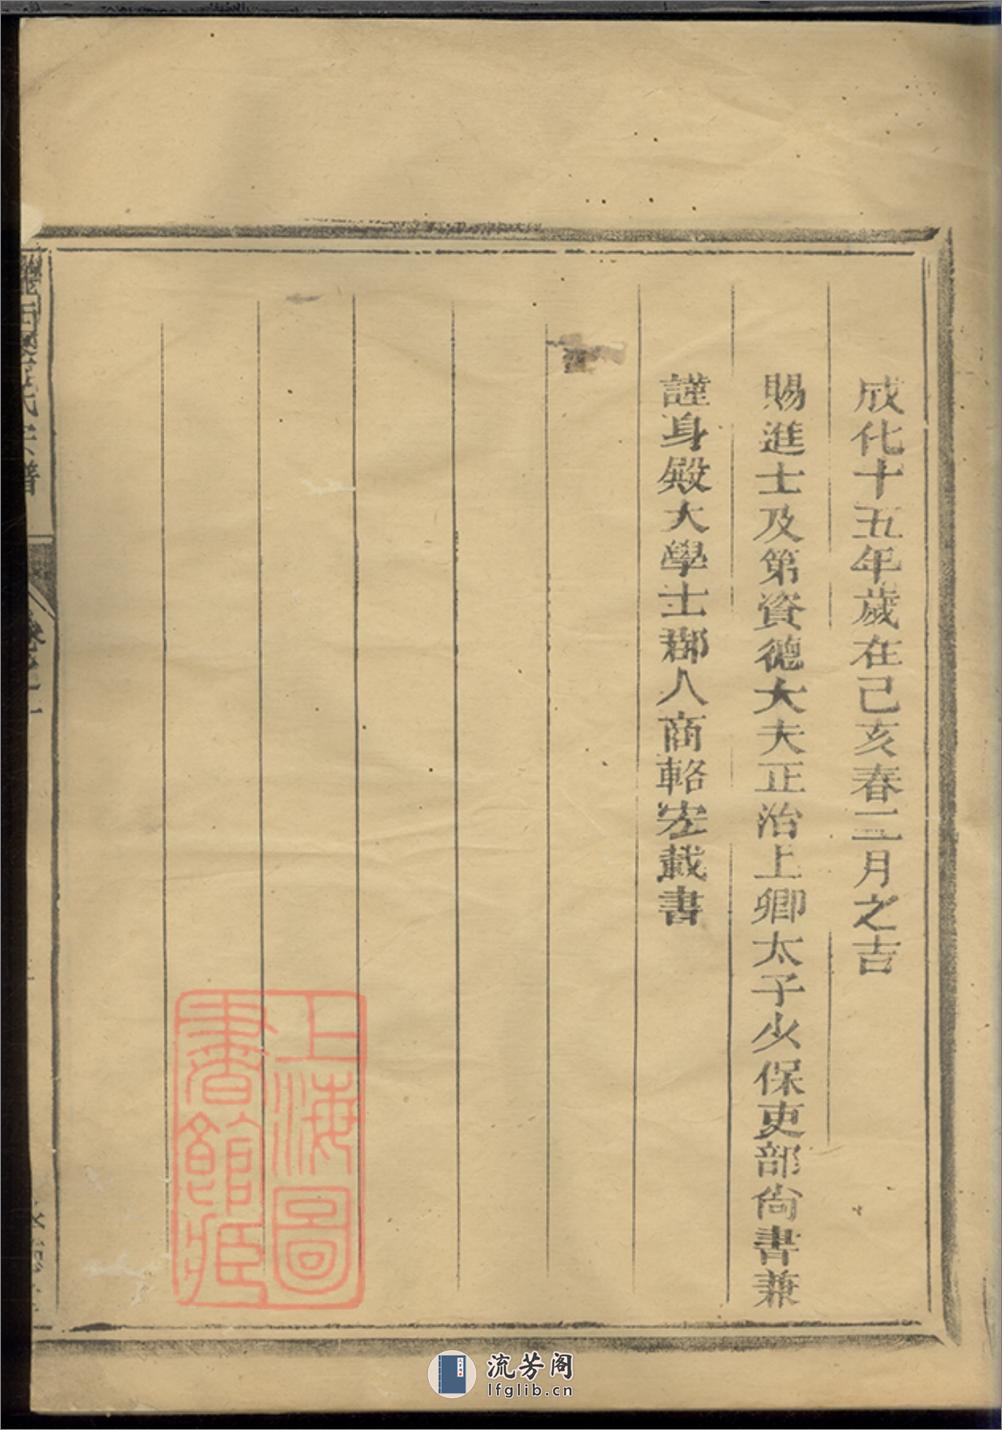 成化十五年歲在己亥春二月之吉
賜進士及第資德大夫正治上卿太子少保吏部尙書兼
謹身殿大學士郡人商輅宏載書
氏宗譜
卷之一
上海圖
書館藏
流芳阁
lfglib.cn